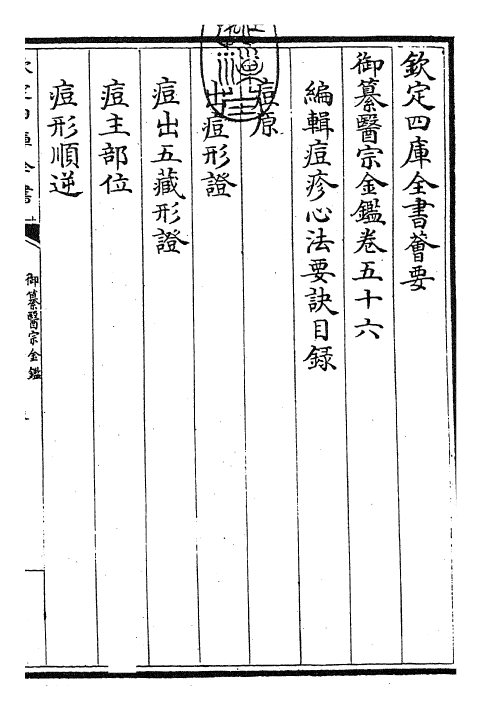 欽定四庫全書薈要
御纂醫宗金鑑卷五十六
編輯痘疹心法要訣目録
痘原
出痘形證
痘出五藏形證
痘主部位
痘形順逆
御纂醫宗金鑑